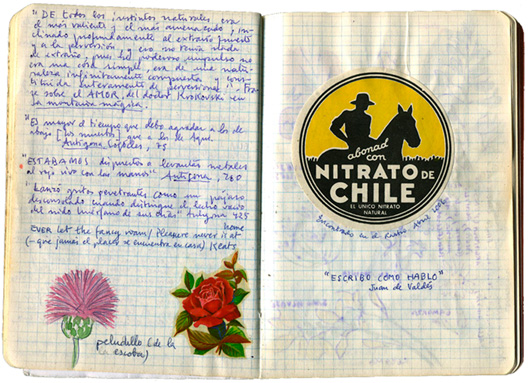 "DE todos los instintos naturales, era
el más valiente y el más amenazado, in-
clinado profundamente al extravío funesto
y a la perversión, y eso no tenía nada
de extraño, pues tal poderoso impulso no
era una cosa simple, era de una natu-
raleza infinitamente compuesta y cons-
tituida enteramente de perversiones". Fra-
se sobre el AMOR, del doctor Krokovski en
La montaña mágica.
"Es mayor el tiempo que debo agradar a los de
abajo [los muertos] que a los de aquí."
Antígona, Sófocles, 75
"ESTABAMOS dispuestos a levantar metales
al rojo vivo con las manos" Antígona, 260
"Lanzó gritos penetrantes como un pájaro
desconsolado cuando distingue el lecho vacío
del nido huérfano de sus crías" Antígona 425
EVER let the fancy roam / Pleasure never is at home
(- que jamás el placer se encuentra en casa) Keats
peludillo (de la
escoba)
abonad
con
NITRATO DE
CHILE
EL UNICO NITRATO
NATURAL
Encontrado en el Rastro Abril
"ESCRIBO COMO HABLO"
Juan de Valdés